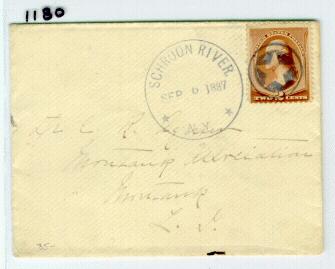 1180
SCHROON RIVER,
SEP 6 1887
N.Y.
TWO CENTS
C. R.
Montauk Association
Montauk
L. I.
35-